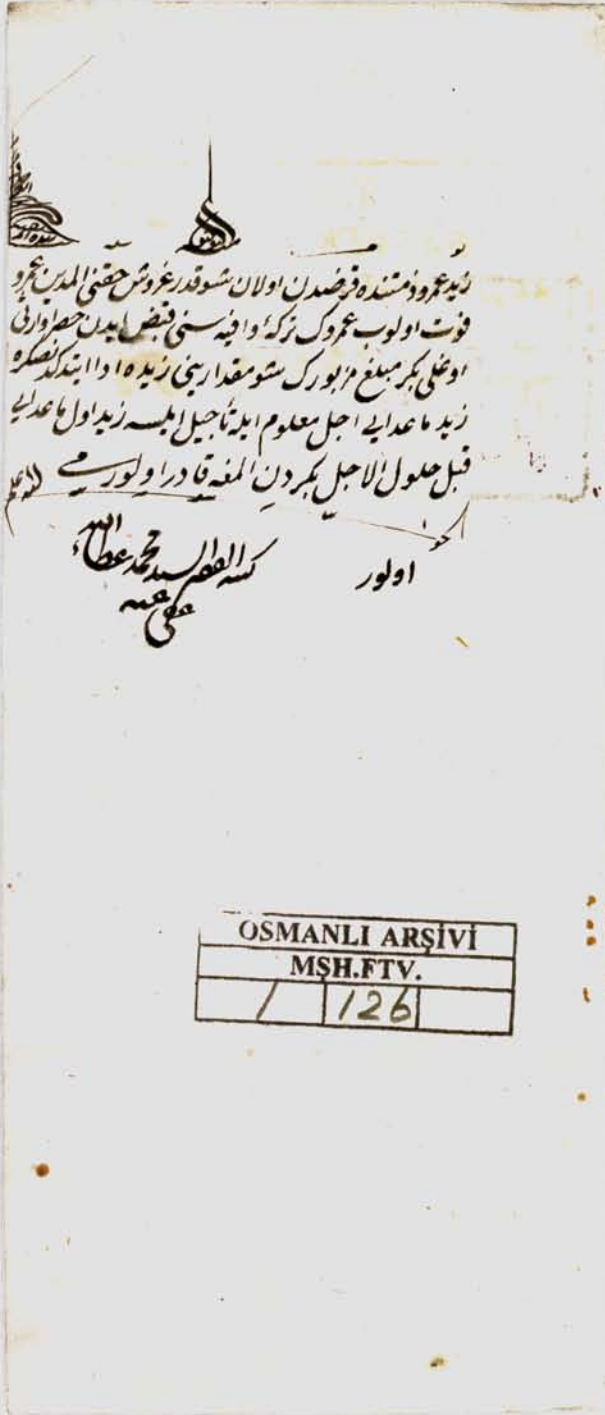 زيد عمرو ذمتنده قرضدن اولان شو قدر غروش حقنى المدين عمرو
فوت اولوب عمروك تركهٔ وافيه سنى قبض ايدن حصرا وارثى
اوغلى بكر مبلغ مزبورك شو مقدارينى زيده ادا ايتدكدنصكره
زيد ماعدايى اجل معلوم ايله تأجيل ايلسه زيد اول ماعدايى
قبل حلول الاجل بكردن المغه قادر اولورمى
الجواب
اولور
كتبه الفقير السيد محمد عطاء الله
عفى عنه
OSMANLI ARŞİVİ
MŞH.FTV.
1 126